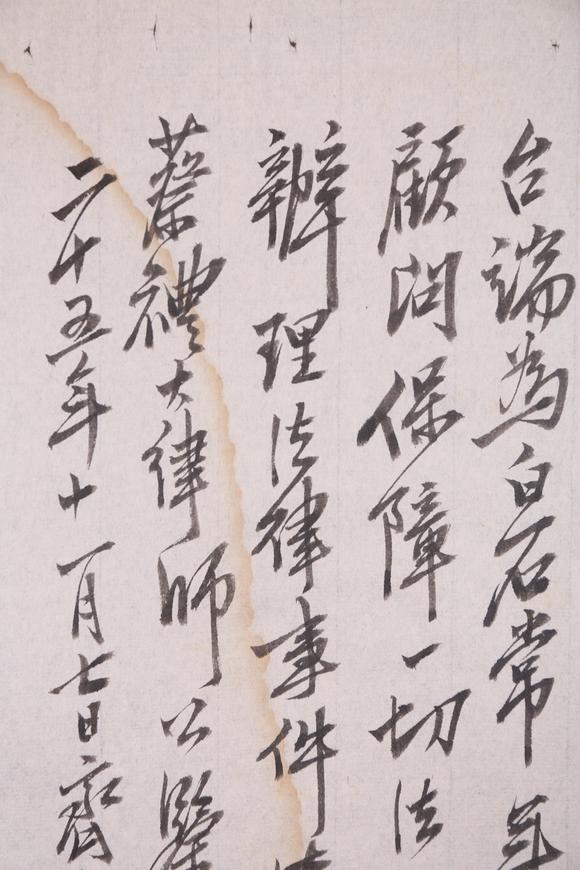 台端為白石常年
顧問保障一切法
辦理法律事件
蔡禮大律師公鑒
二十五年十一月七日齊